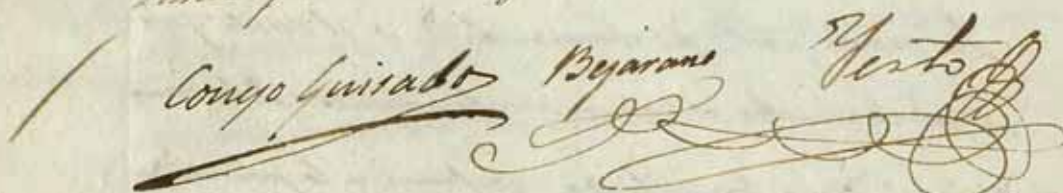 Conejo Guisado Bejarano Yesto